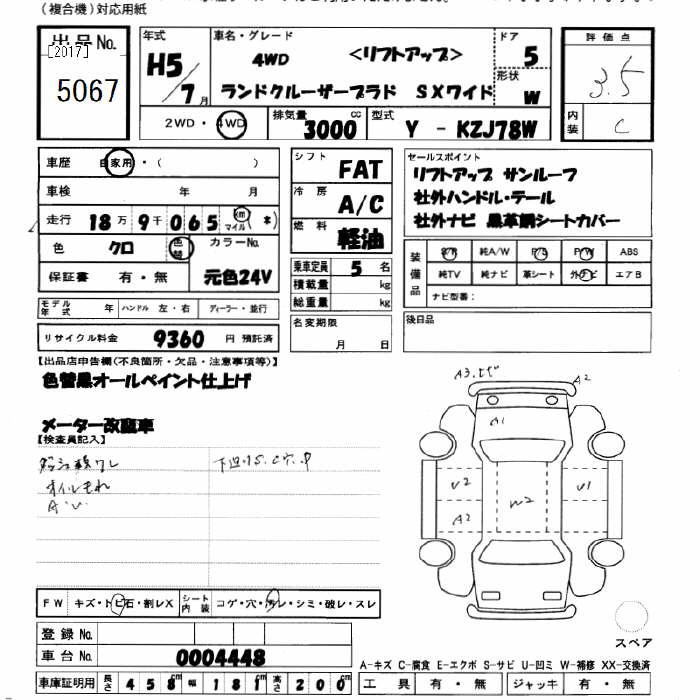 (複合機)対応用紙
出品No.
[2017]
5067
年式
H5/7月
車名・グレード
4WD <リフトアップ>
ランドクルーザープラド SXワイド
ドア
5
形状
W
評価点
3.5
内装
C
2WD・4WD
排気量 3000 cc
型式 Y - KZJ78W
車歴 自家用・( )
車検 年 月
走行 18万9千065 km マイル (*)
色 クロ 色替 カラーNo.
保証書 有・無 元色24V
モデル年式 年 ハンドル 左・右 ディーラー・並行
リサイクル料金 9360 円 預託済
シフト FAT
冷房 A/C
燃料 軽油
乗車定員 5 名
積載量 kg
総重量 kg
名変期限
月 日
セールスポイント
リフトアップ サンルーフ
社外ハンドル・テール
社外ナビ 黒革調シートカバー
装備品
S/R 純A/W P/S P/W ABS
純TV 純ナビ 革シート 外ナビ エアB
ナビ型番:
後日品
【出品店申告欄(不良箇所・欠品・注意事項等)】
色替黒オールペイント仕上げ
メーター改竄車
【検査員記入】
オイルもれ
A3
A2
A1
U2
A2
W2
U1
FW キズ・トビ石・割レX
シート内装 コゲ・穴・汚レ・シミ・破レ・スレ
登録No.
車台No. 0004448
車庫証明用 長さ 458 巾 181 高さ 200
スペア
A-キズ C-腐食 E-エクボ S-サビ U-凹ミ W-補修 XX-交換済
工具 有・無 ジャッキ 有・無